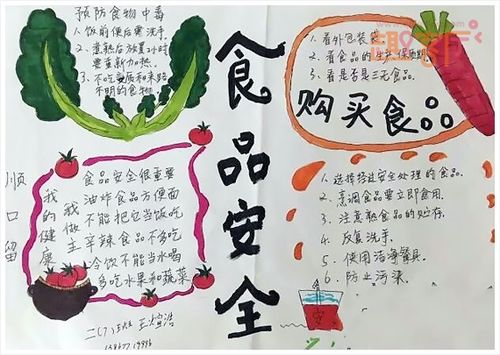 预防食物中毒
1、饭前便后要洗手。
2、煮熟后放置2小时
要重新加热。
3、不吃变质和来路
不明的食物
食品安全
1、看外包装袋
2、看食品的生产保质期
3、看是否是三无食品。
购买食品
顺口留
我的健康
我做主
食品安全很重要
油炸食品方便面
不能把它当饭吃
辛辣食品不多吃
冷饮不能当水喝
多吃水果和蔬菜
1、选择经过安全处理的食品。
2、烹调食品要立即食用。
3、注意熟食品的贮存。
4、反复洗手。
5、使用洁净餐具。
6、防止污染。
二(7)班 王煊浩